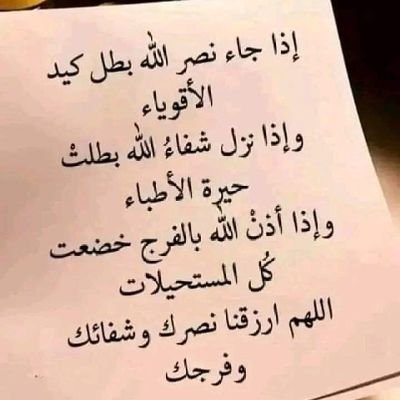 إذا جاء نصر الله بطل كيد
الأقوياء
وإذا نزل شفاءُ الله بطلتْ
حيرة الأطباء
وإذا أذنْ الله بالفرج خضعت
كُل المستحيلات
اللهم ارزقنا نصرك وشفائك
وفرجك